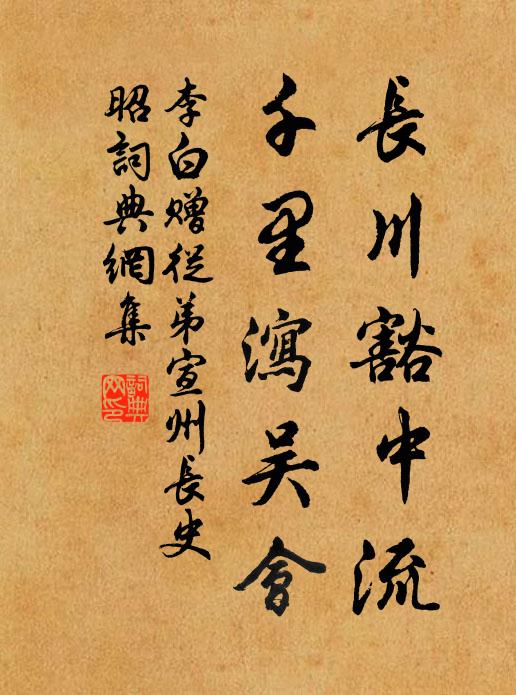 長川豁中流
千里瀉吳會
李白贈從弟宣州長史
昭詞典網集
詞典網印